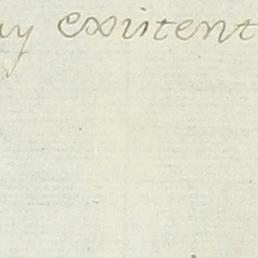 ay existent